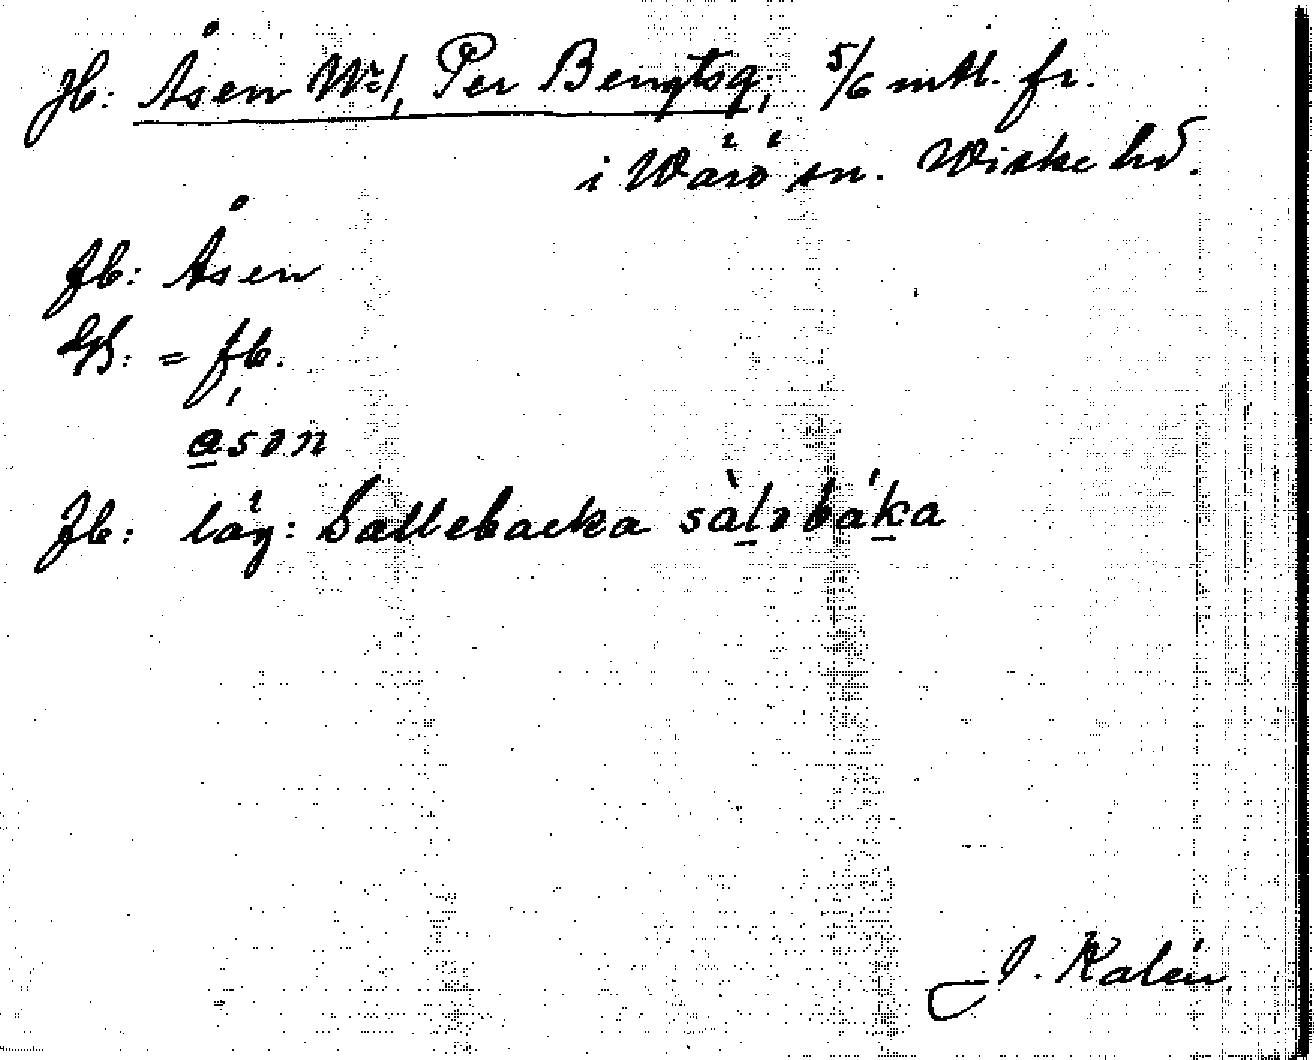 Jb: Åsen No 1, Per Bengtsg; 5/6 mtl. fr.
i Wärö sn. Wiske hd.
Jb: Åsen
GS: = fb.
åsən
Jb: läg: Sallebacka sàləbáka
J. Kalén.